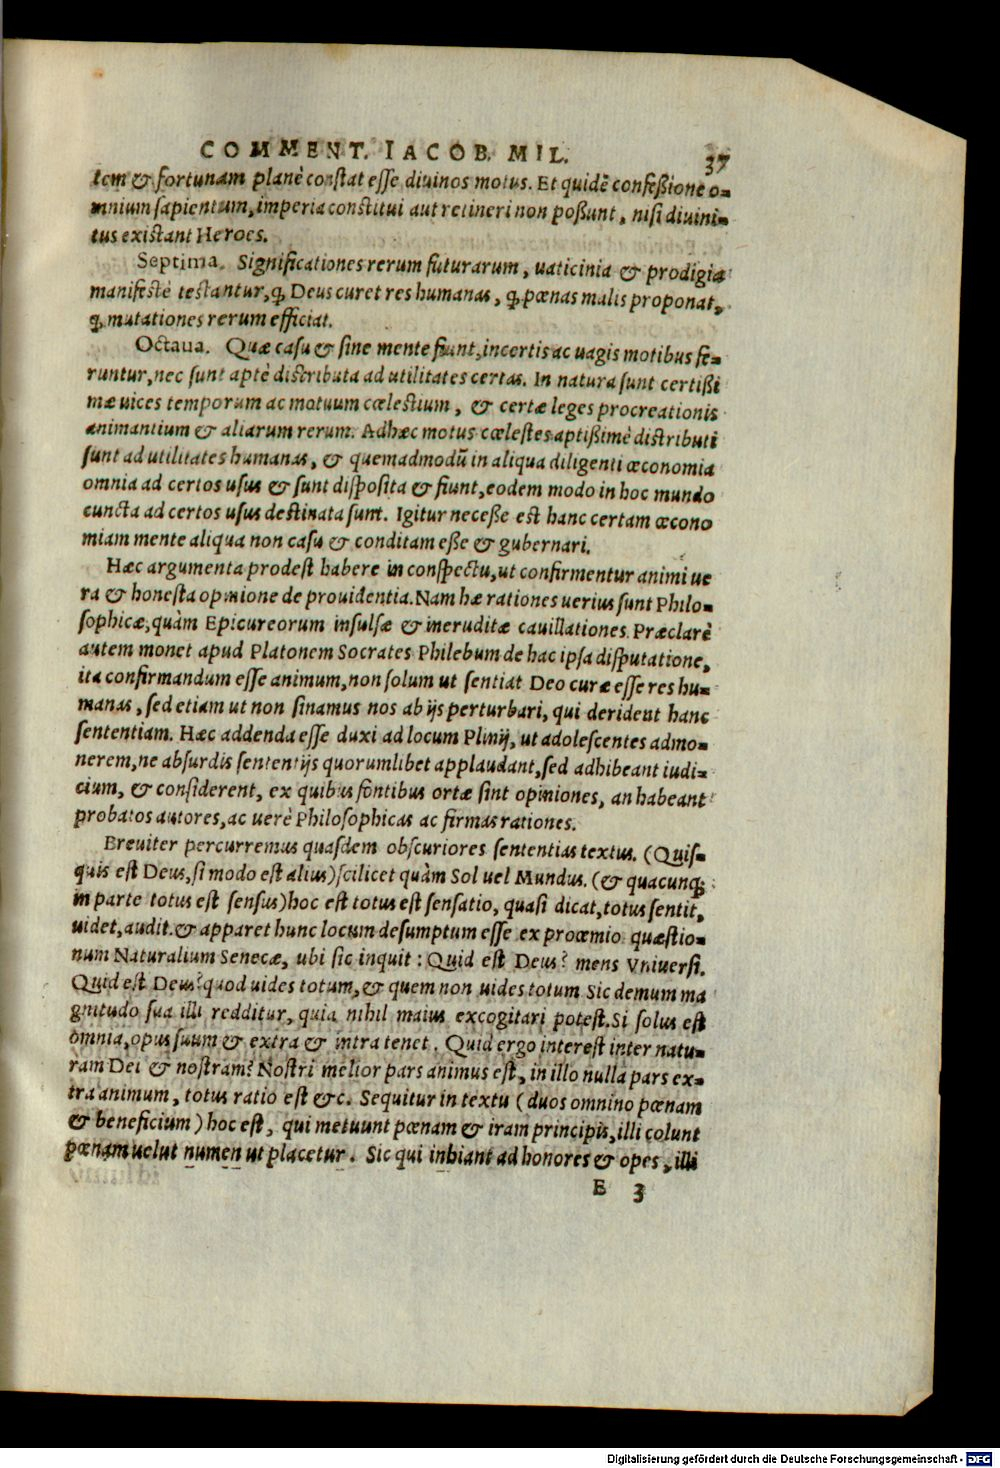 COMMENT. IACOB. MIL. 37
tem & fortunam planè constat esse diuinos motus. Et quidē confeßione o-
mnium sapientum, imperia constitui aut retineri non poßunt, nisi diuini-
tus existant Heroes.
Septima. Significationes rerum futurarum, uaticinia & prodigia
manifestè testantur, ꝙ Deus curet res humanas, ꝙ pœnas malis proponat,
ꝙ mutationes rerum efficiat.
Octaua. Quæ casu & sine mente fiunt, incertis ac uagis motibus fe-
runtur, nec sunt aptè distributa ad utilitates certas. In natura sunt certißi
mæ uices temporum ac motuum cœlestium, & certæ leges procreationis
animantium & aliarum rerum. Adhæc motus cœlestes aptißimè distributi
sunt ad utilitates humanas, & quemadmodū in aliqua diligenti œconomia
omnia ad certos usus & sunt disposita & fiunt, eodem modo in hoc mundo
cuncta ad certos usus destinata sunt. Igitur neceße est hanc certam œcono
miam mente aliqua non casu & conditam eße & gubernari.
Hæc argumenta prodest habere in conspectu, ut confirmentur animi ue
ra & honesta opinione de prouidentia. Nam hæ rationes uerius sunt Philo-
sophicæ, quàm Epicureorum insulsæ & ineruditæ cauillationes. Præclarè
autem monet apud Platonem Socrates Philebum de hac ipsa disputatione,
ita confirmandum esse animum, non solum ut sentiat Deo curæ esse res hu-
manas, sed etiam ut non sinamus nos ab ijs perturbari, qui derident hanc
sententiam. Hæc addenda esse duxi ad locum Plinij, ut adolescentes admo-
nerem, ne absurdis sententijs quorumlibet applaudant, sed adhibeant iudi-
cium, & considerent, ex quibus fontibus ortæ sint opiniones, an habeant
probatos autores, ac uerè Philosophicas ac firmas rationes.
Breuiter percurremus quasdem obscuriores sententias textus. (Quis-
quis est Deus, si modo est alius) scilicet quàm Sol uel Mundus. (& quacunqꝫ
in parte totus est sensus) hoc est totus est sensatio, quasi dicat, totus sentit,
uidet, audit. & apparet hunc locum desumptum esse ex proœmio quæstio-
num Naturalium Senecæ, ubi sic inquit: Quid est Deus? mens Vniuersi.
Quid est Deus? quod uides totum, & quem non uides totum Sic demum ma
gnitudo sua illi redditur, quia nihil maius excogitari potest. Si solus est
omnia, opus suum & extra & intra tenet. Quid ergo interest inter natu-
ram Dei & nostram? Nostri melior pars animus est, in illo nulla pars ex-
tra animum, totus ratio est &c. Sequitur in textu (duos omnino pœnam
& beneficium) hoc est, qui metuunt pœnam & iram principis, illi colunt
pœnam uelut numen ut placetur. Sic qui inhiant ad honores & opes, illi
E 3
Digitalisierung gefördert durch die Deutsche Forschungsgemeinschaft - DFG